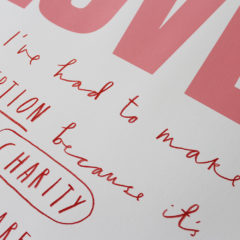 OVE
I've had to make
PTION because it's
CHARITY
ARE